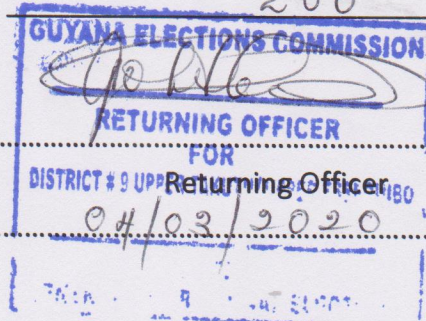 200
GUYANA ELECTIONS COMMISSION
RETURNING OFFICER
FOR
DISTRICT # 9 UPP
Returning Officer
04/03/2020